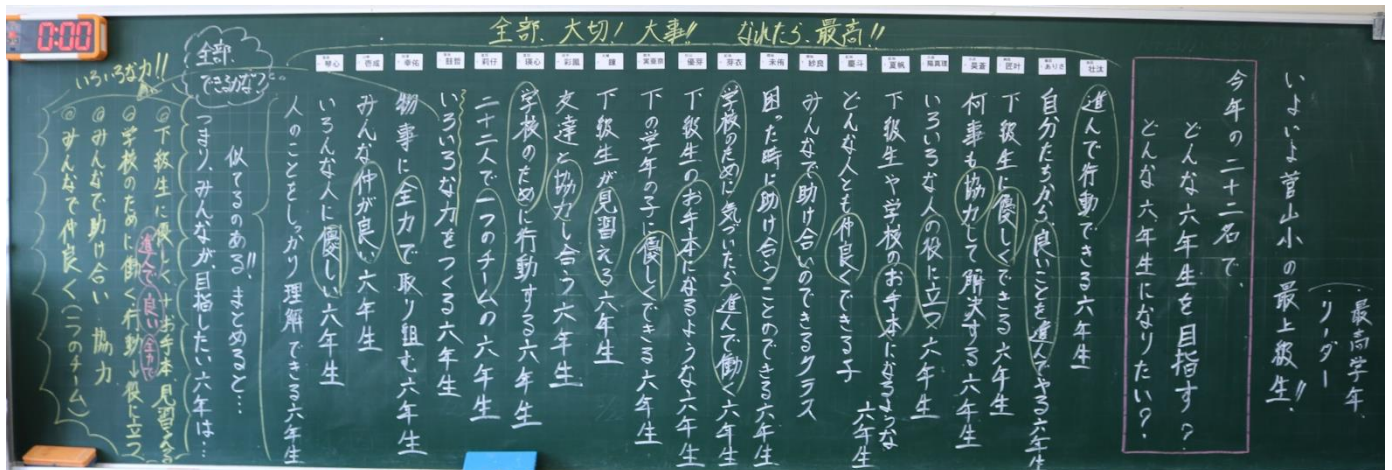 0:00
全部、大切！大事!! なれたら、最高!!
最高学年、
リーダー
いよいよ菅山小の最上級生!!
今年の二十二名で、
どんな六年生を目指す？
どんな六年生になりたい？
壮汰
進んで行動できる六年生
ありさ
自分たちから、良いことを進んでやる六年生
匠叶
下級生に優しくできる六年生
葵蒼
何事も協力して解決する六年生
陽真理
いろいろな人の役に立つ六年生
夏帆
下級生や学校のお手本になるような
六年生
慶斗
どんな人とも仲良くできる子
紗良
みんなで助け合いのできるクラス
未侑
困った時に助け合うことのできる六年生
芽衣
学校のために気づいたら進んで働く六年生
優芽
下級生のお手本になるような六年生
実亜奈
下の学年の子に優しくできる六年生
鎌
下級生が見習える六年生
彩風
友達と協力し合う六年生
瑛心
学校のために行動する六年生
莉仔
二十二人で一つのチームの六年生
慈哲
いろいろな力をつくる六年生
幸佑
物事に全力で取り組む六年生
壱咸
みんな仲が良い六年生
琴心
いろんな人に優しい六年生
人のことをしっかり理解できる六年生
全部、
できるかな？
似てるのある!! まとめると…
つまり、みんなが、目指したい六年生は…
いろいろな力!!
◎下級生に優しく＋お手本 見習える
◎学校のために働く行動→役に立つ
進んで 良い 全力で
◎みんなで助け合い 協力
◎みんなで仲良く（一つのチーム）